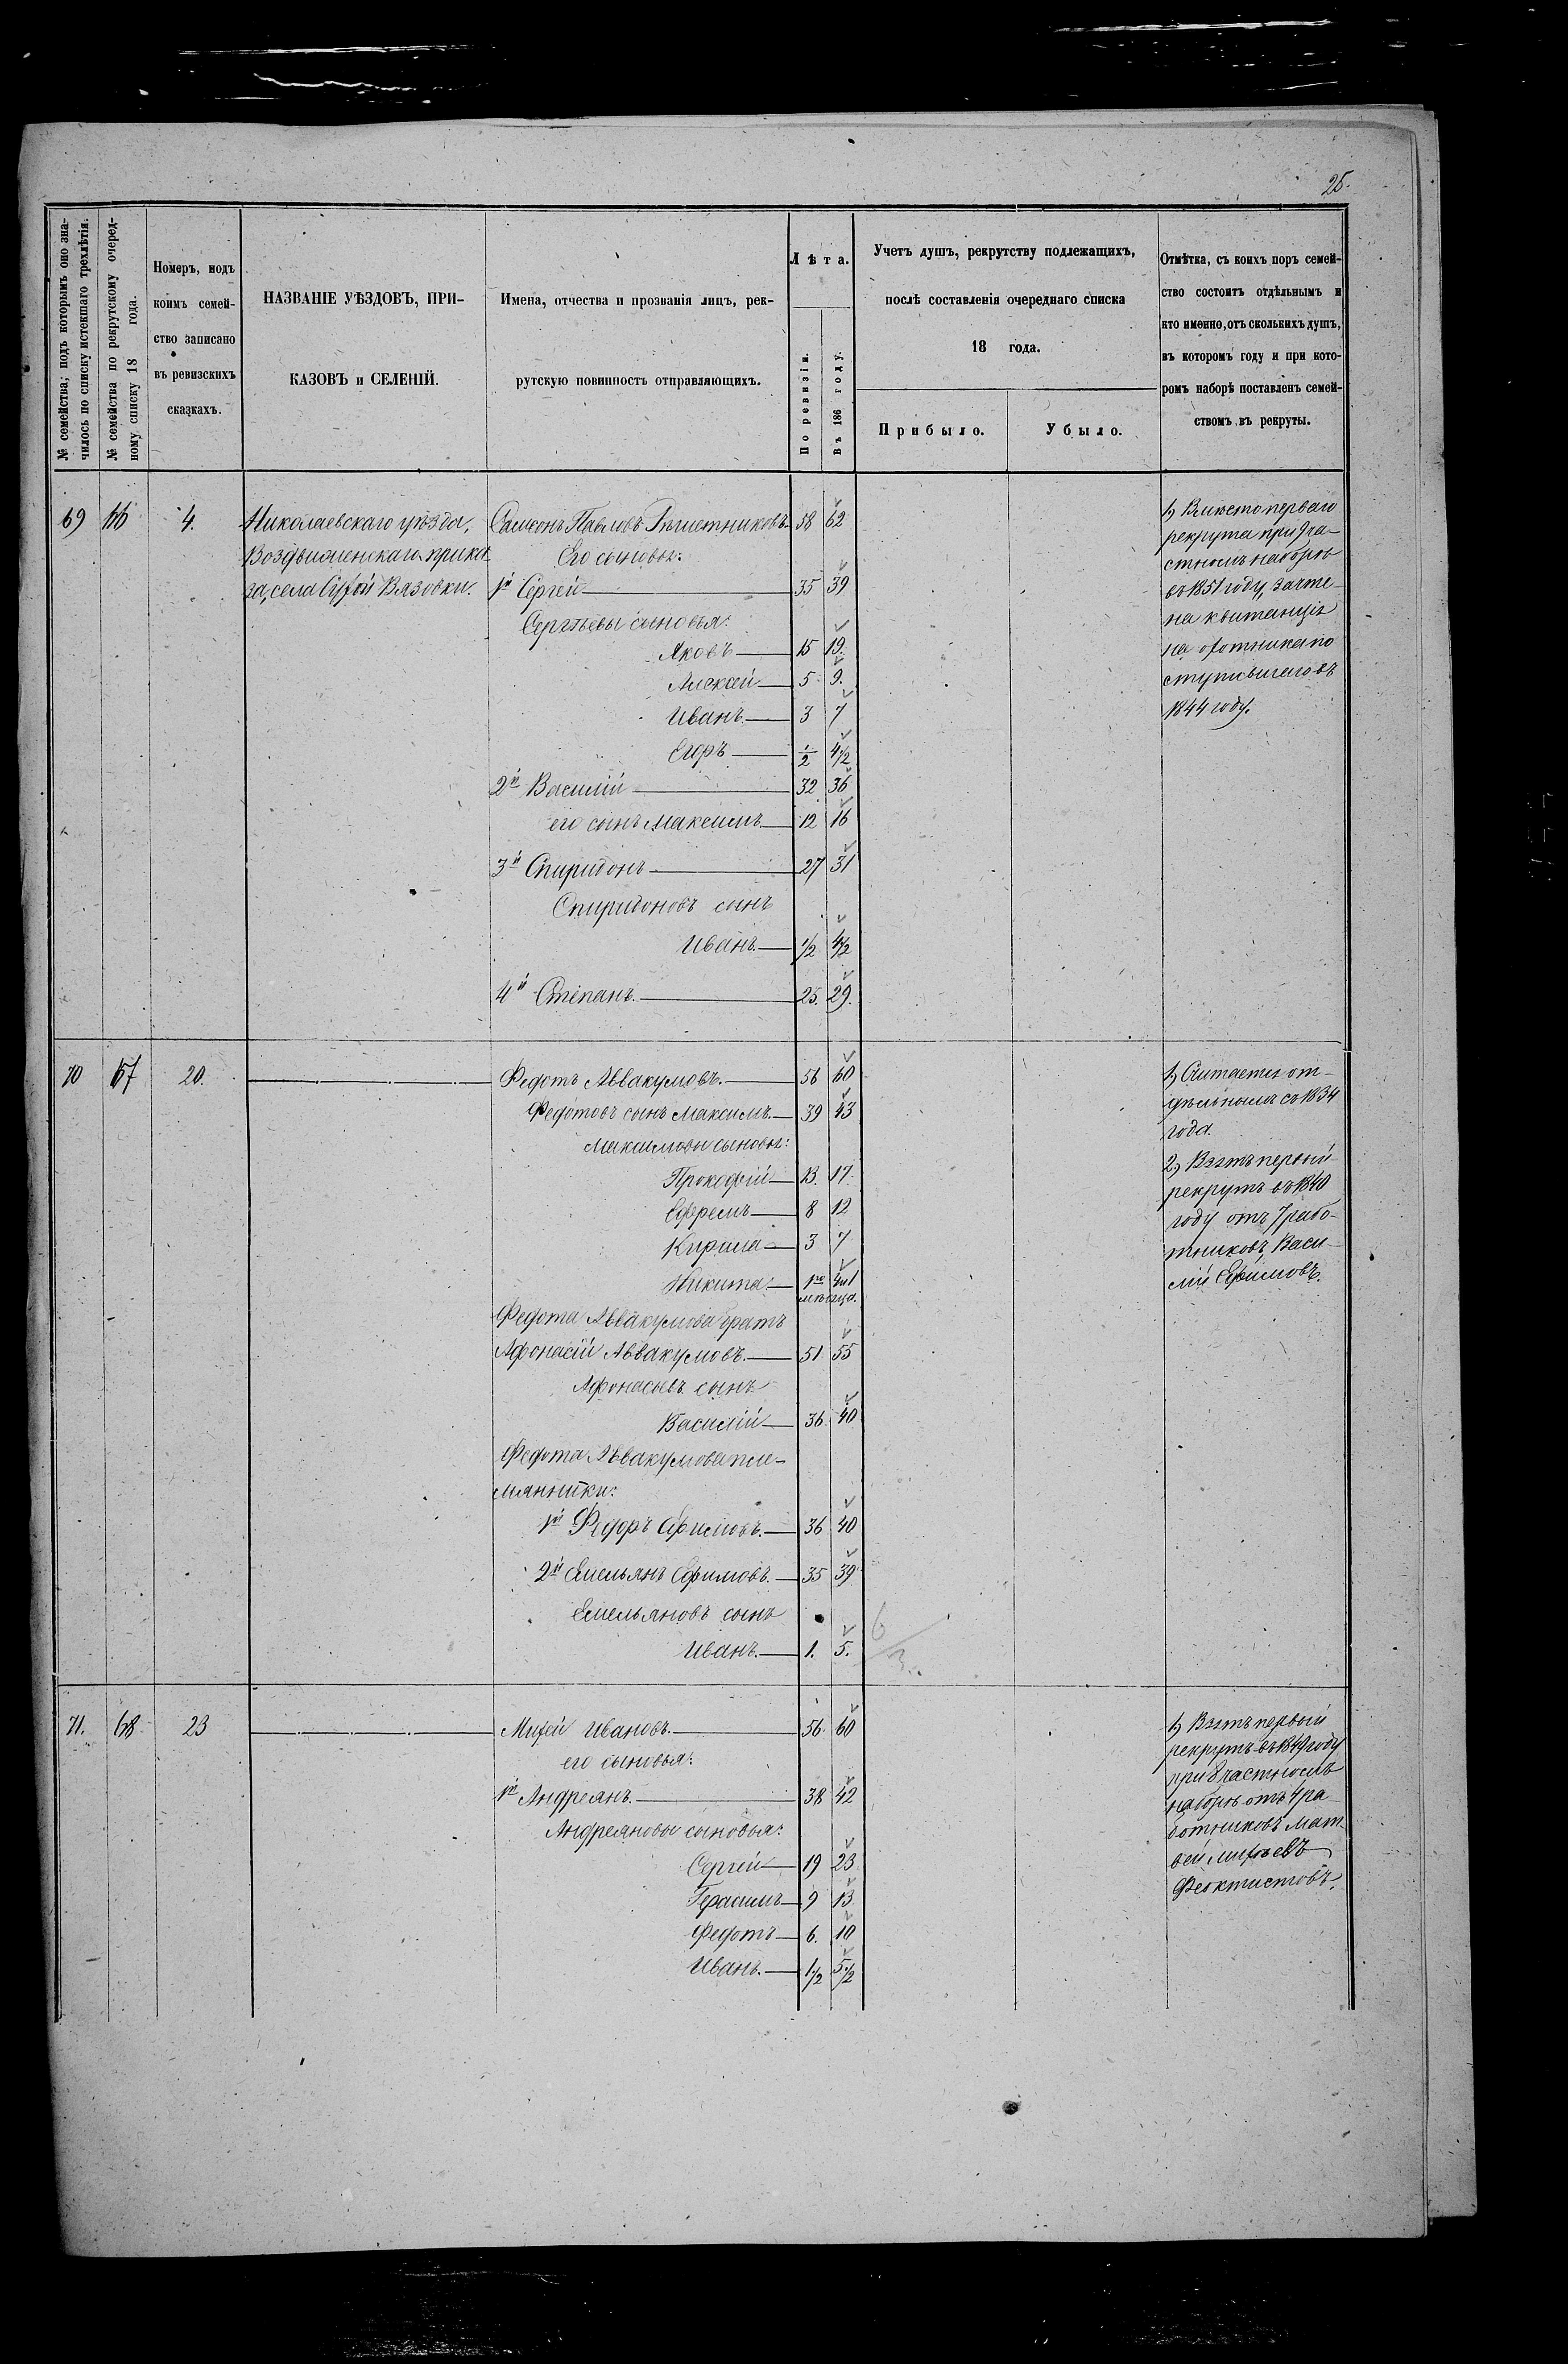 25.
№ семейства, подъ которымъ оно зна-
чилось по списку истекшаго трехлѣтія.
№ семейства по рекрутскому очеред-
ному списку 18 года.
Номеръ, подъ
коимъ семей-
ство записано
въ ревизскихъ
сказкахъ.
НАЗВАНІЕ УѢЗДОВЪ, ПРИ-
КАЗОВЪ и СЕЛЕНІЙ.
Имена, отчества и прозванія лицъ, рек-
рутскую повинность отправляющихъ.
Лѣта.
По ревизіи.
Въ 186 году.
Учетъ душъ, рекрутству подлежащихъ,
послѣ составленія очереднаго списка
18 года.
Прибыло.
Убыло.
Отмѣтка, съ коихъ поръ семей-
ство состоитъ отдѣльнымъ и
кто именно, отъ сколькихъ душъ,
въ которомъ году и при кото-
ромъ наборѣ поставленъ семей-
ствомъ въ рекруты.
69 66 4. Николаевскаго уѣзда, Самсонъ Павловъ 58 62
Воздвиженскаго прика- Его сыновья:
за, села Сухой Вязовки. 1й Сергей 35 39
Сергѣевы сыновья:
Яковъ 15 19.
Алексѣй 5 9.
Иванъ 3 7
Егоръ 1/2 4 1/2
2й Василій 32 36
его сынъ Максимъ 12 16
3й Спиридонъ 27 31
Спиридоновъ сынъ
Иванъ. 1/2 4 1/2
4й Степанъ. 25. 29.
1, Вмѣсто перваго
рекрута при 9 ча-
стномъ наборѣ
въ 1851 году, зачте-
на квитанція
на охотника по
ступившаго въ
1844 году.
70 67 20. Федотъ Аввакумовъ. 56 60
Федотовъ сынъ Максимъ. 39 43
Максимовы сыновья:
Прокофій 13. 17.
Ефремъ 8 12
Кирила 3 7
Никита. 1го 4 и 1
мѣсяца.
Федота Аввакумова братъ
Афонасій Аввакумовъ. 51 55
Афонасьевъ сынъ
Василій 36 40
Федота Аввакумова пле-
мянники:
1й Федоръ Ефимовъ. 36 40
2й Емельянъ Ефимовъ. 35 39
Емельяновъ сынъ
Иванъ. 1. 5.
6/3
1, Считается от-
дѣльными съ 1834
года.
2, Взятъ первый
рекрутъ въ 1840
году отъ 7 рабо-
тниковъ, Васи-
лій Ефимовъ.
71. 68 23 Михей Ивановъ. 56 60
его сыновья:
1й Андреянъ. 38 42
Андреяновы сыновья:
Сергей 19 23
Герасимъ 9 13
Федотъ 6. 10
Иванъ. 1 1/2 5 1/2
1, Взятъ первый
рекрутъ въ 1849 году
при 8 частномъ
наборѣ отъ 4 ра-
ботниковъ Мат
вей Михѣевъ
Феоктистовъ.